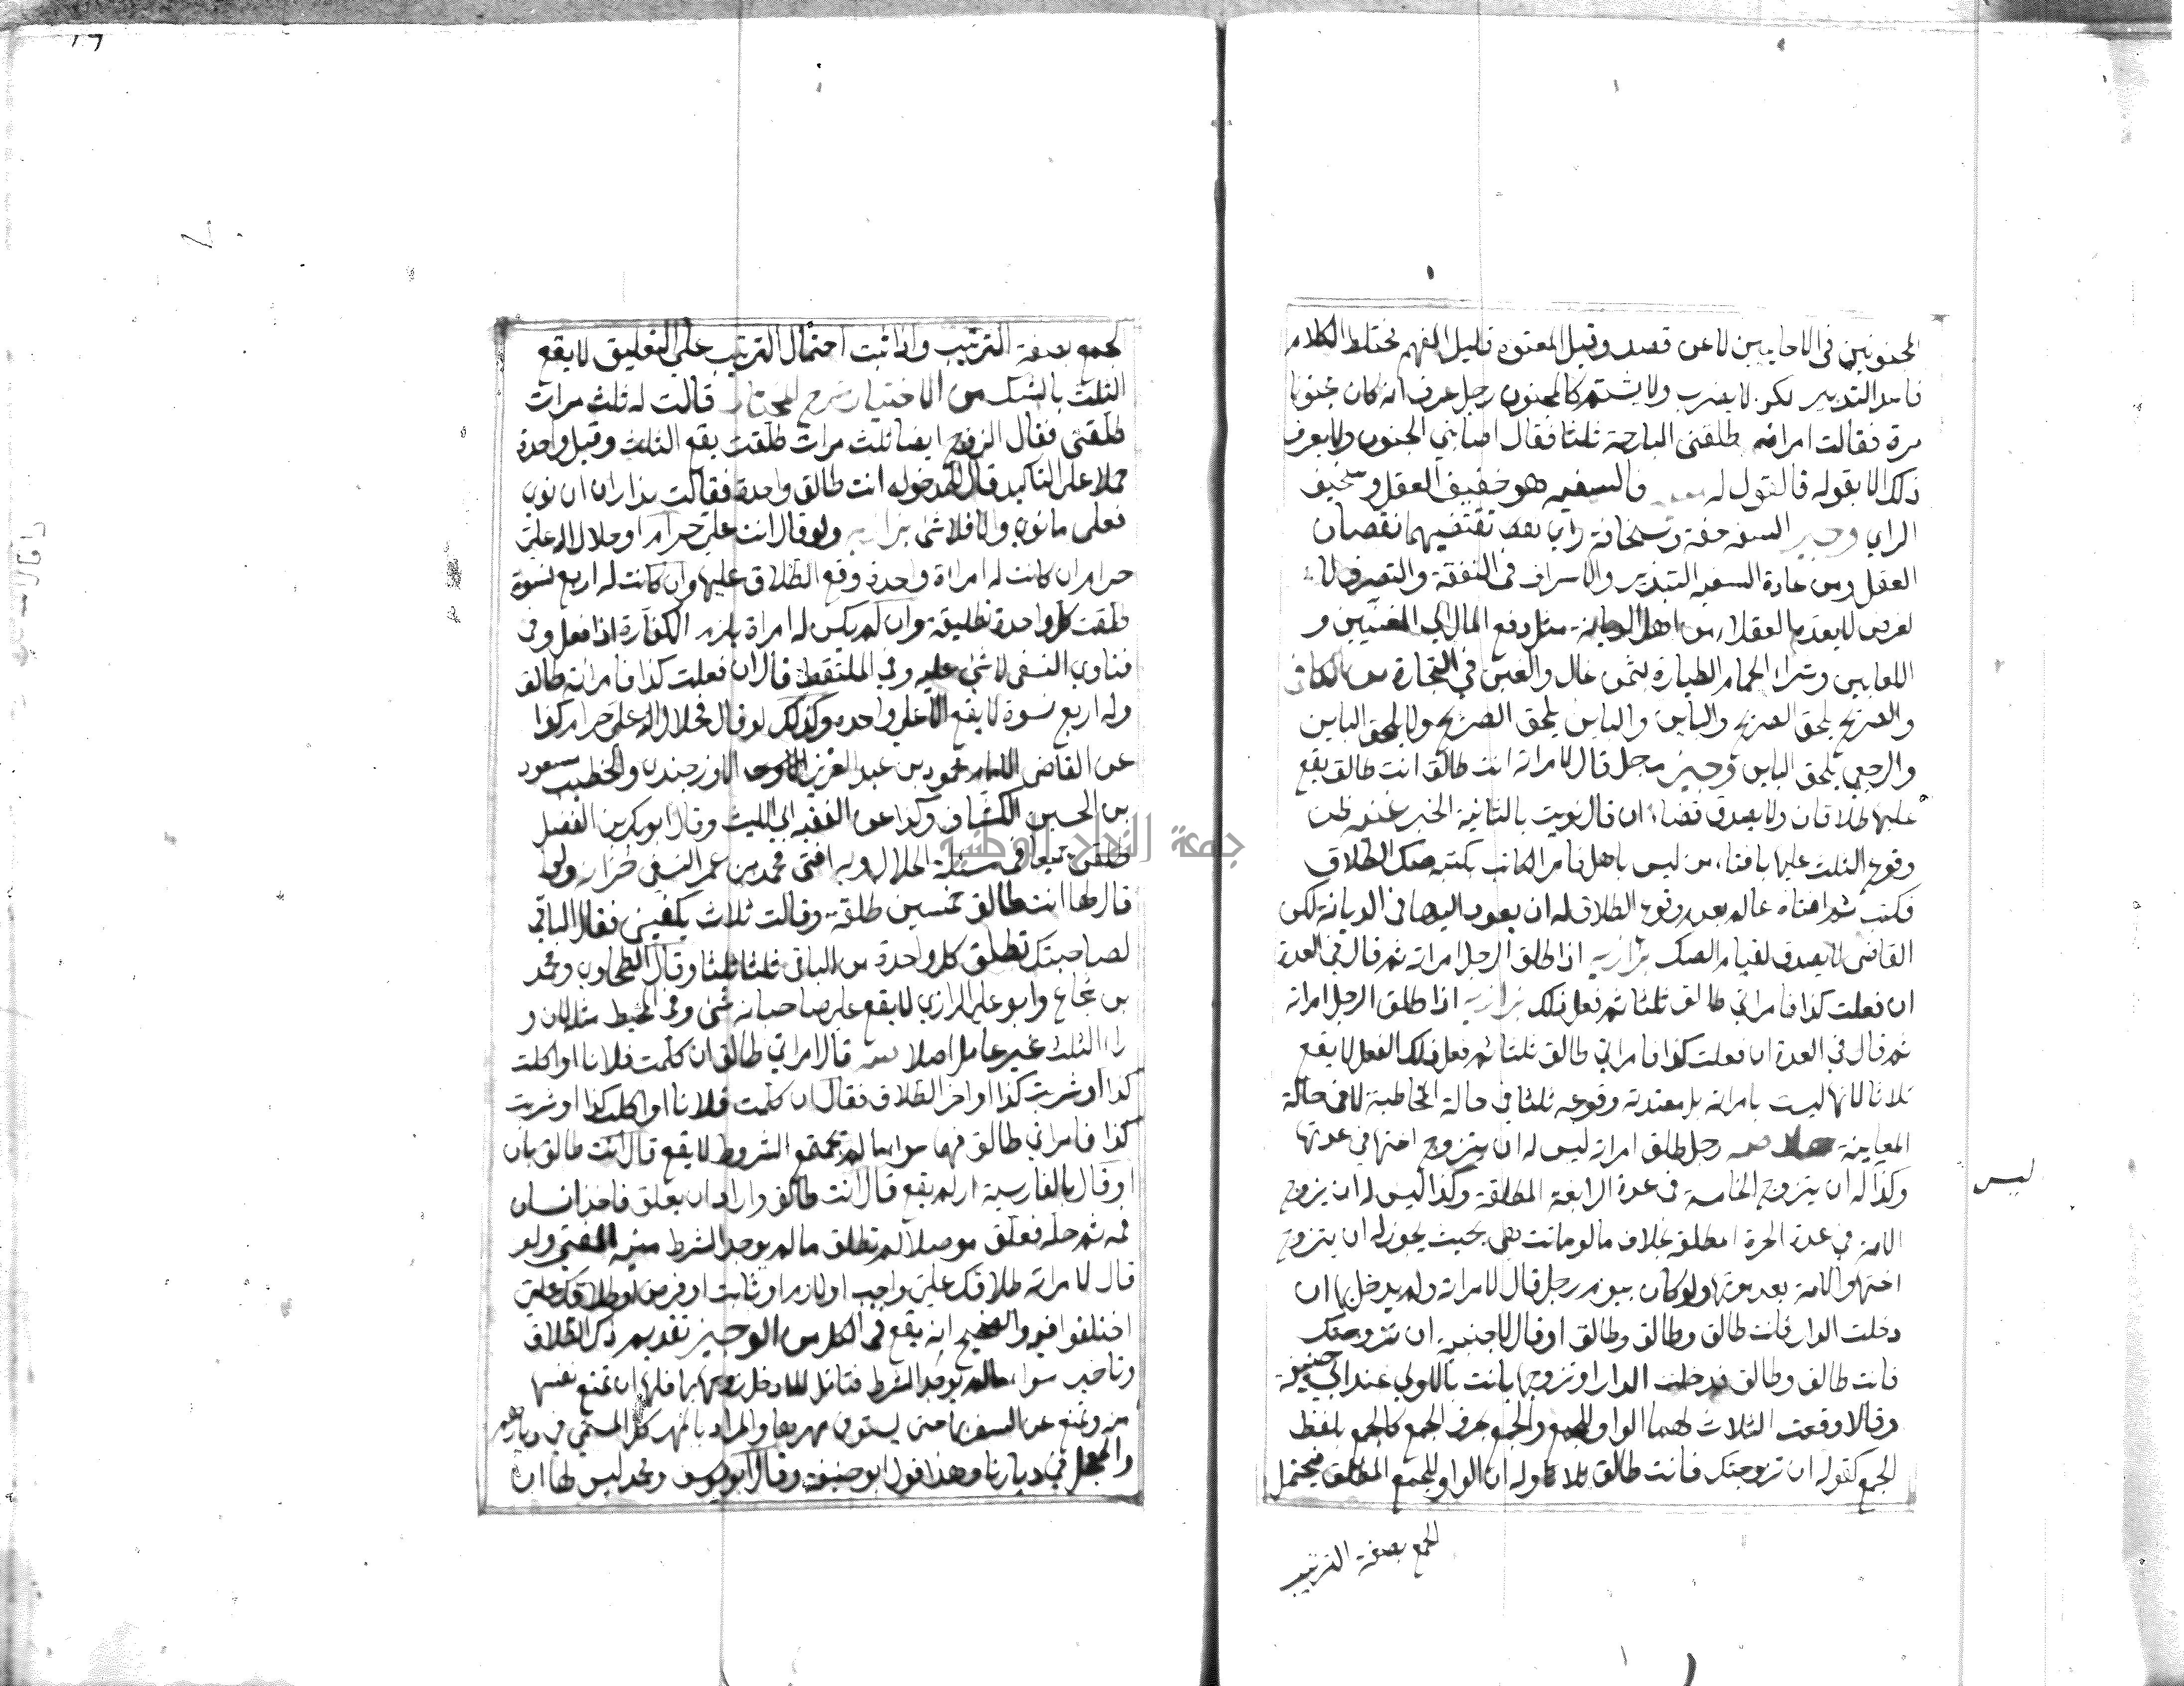 المجنونين في الاحايين لا عن قصد وقيل المعتوه قليل الفهم مختلط الكلام
فاسد التدبير لكن لا يضرب ولا يشتم كالمجنون رجل عرف انه كان مجنونا
مرة فقالت امراته طلقني البارحة ثلثا فقال اصابني الجنون ولا يعرف
ذلك الا بقوله فالقول له والسفيه هو خفيف العقل وسخيف
الراي وجيز السفه خفة وسخافة راي نقض تقتضيهما نقصان
العقل ومن عادة السفيه التبذير والاسراف في النفقة والتصرف لا
لغرض لا يعده العقلاء من اهل الديانة مثل دفع المال الي المغنيين و
اللعابين وشراء الحمام الطيارة بثمن غال والغبن في التجارة من الكافي
والصريح يلحق الصريح والباين والباين يلحق الصريح ولا يلحق الباين
والرجعي يلحق الباين وجيز رجل قال لامراته انت طالق انت طالق يقع
عليها طلاقان ولا يصدق قضاء ان قال نويت بالثانية الخبر غنيه ظن
وقوع الثلث عليها بافتاء من ليس باهل فامر الكاتب بكتبه صك الطلاق
فكتب ثم افتاه عالم بعدم وقوع الطلاق له ان يعود اليها في الديانة لكن
القاضي لا يصدق لقيام الصك بزازيه اذا طلق الرجل امراته ثم قال في العدة
ان فعلت كذا فامراتي طالق ثلثا ثم فعل ذلك بزازيه اذا طلق الرجل امراته
ثم قال في العدة ان فعلت كذا فامراتي طالق ثلثا ثم فعل ذلك الفعل لا يقع
ثلاثا لانها ليست بامراته بل معتدته وقوعه ثلثا في حالة المخاطبة لا في حالة
المعاينة خلاصه رجل طلق امراته ليس له ان يتزوج اختها في عدتها
وكذا له ان يتزوج الخامسة في عدة الرابعة المطلقة وكذا ليس له ان يزوج
ليس
الامة في عدة الحرة المطلقة بخلاف ما لو ماتت هي بحيث يجوز له ان يتزوج
اختها والامة بعد موتها ولو كان بيوم رجل قال لامراته ولم يدخل بها ان
دخلت الدار فانت طالق وطالق وطالق او قال لاجنبية ان تزوجتك
فانت طالق وطالق فدخلت الدار او تزوجها بانت بالاولي عند ابي حنيفة
وقالا وقعت الثلاث لهما الواو للجمع والجمع بحرف الجمع كالجمع بلفظ
الجمع كقوله ان تزوجتك فانت طالق ثلاثا وله ان الواو للجمع المطلق فيحتمل
الجمع بصفة الترتيب
الجمع بصفة الترتيب واذا ثبت احتمال الترتيب علي التعليق لا يقع
الثلث بالشك من الاختيار شرح المختار قالت له ثلث مرات
طلقني فقال الزوج ايضا ثلث مرات طلقت يقع الثلث وقيل واحدة
حملا علي التاكيد قال لمدخوله انت طالق واحدة فقالت هزار ان نوي
فعلي ما نوي والا فلا شي بزازيه ولو قال انت علي حرام او حلال الله علي
حرام ان كانت له امراة واحدة وقع الطلاق عليها وان كانت له اربع نسوة
طلقت كل واحدة تطليقة وان لم يكن له امراة يلزمه الكفارة اذا فعل وفي
فتاوي النسفي لا شي عليه وفي الملتقط قال ان فعلت كذا فامراته طالق
وله اربع نسوة لا يقع الا علي واحده وكذلك لو قال فحلال الله علي حرام كذا
عن القاضي الامام محمود بن عبد العزيز الاوزجندي والخطيب مسعود
بن الحسين الكشاني وكذا عن الفقيه ابي الليث وقال ابو بكر بن الفضل
طلقن جميعا في مسئلة الحلال وبه افتي محمد بن عمر النسفي خزانه ولو
قال لها انت طالق خمسين طلقة وقالت ثلاث يكفيني فقال الباقي
لصاحبتك تطلق كل واحدة من الباقي ثلثا ثلثا وقال الطحاوي ومحمد
بن شجاع وابو علي الرازي لا يقع علي صاحباته شي وفي المحيط
راء الثلث غير عامل اصلا قال امراتي طالق ان كلمت فلانا او اكلت
كذا او شربت كذا او اخر الطلاق فقال ان كلمت فلانا او اكلت كذا او شربت
كذا فامراتي طالق فهما سواء ما لم تجتمع الشروط لا يقع قال انت طالق بان
او قال بالفارسية ار لم يقع قال انت طالق واراد ان يعلق فاخذ انسان
فمه ثم حله فعلق موصلا لم تطلق ما لم يوجد الشرط منية المفتي ولو
قال لامراته طلاقك علي واجب او لازم او ثابت او فرض او طلاقك علي
اختلفوا فيه والصحيح انه يقع في الكل من الوجيز تقديم ذكر الطلاق
وتاخيره سواء ما لم يوجد الشرط فتامل دخل زوجها بها فلها ان تمنع نفسها
منه وتمنع عن السفر بها حتي يستوفي مهرها والمراد بالمهر كل المسمي في ديارهم
والمعجل في ديارنا وهذا قول ابو حنيفة وقال ابو يوسف ومحمد ليس لها ان